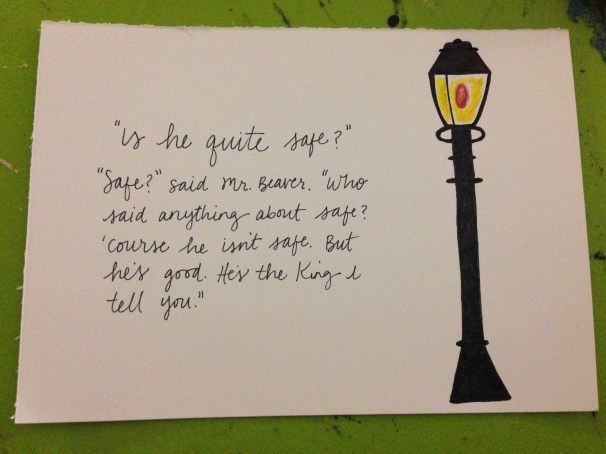 "is he quite safe?"
"Safe?" said Mr. Beaver. "Who
said anything about safe?
'course he isn't safe. But
he's good. He's the King I
tell you."